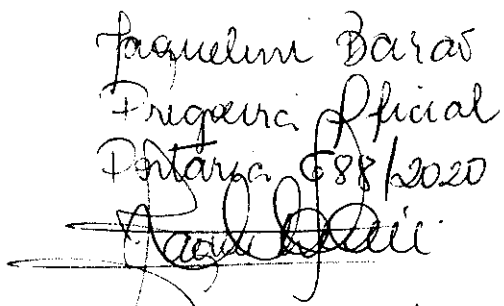 Jaquelini Barão
Pregoeira Oficial
Portaria 688/2020